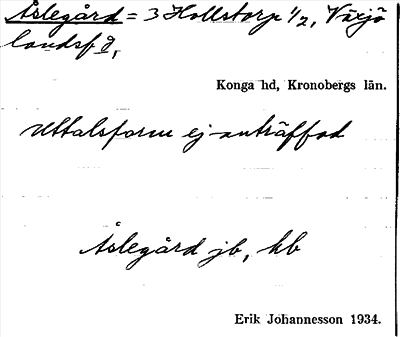 Åslegård = 3 Hollstorp 1/2, Växjö
landsfg,
Konga hd, Kronobergs län.
Uttalsform ej anträffad
Åslegård jb, kb
Erik Johannesson 1934.